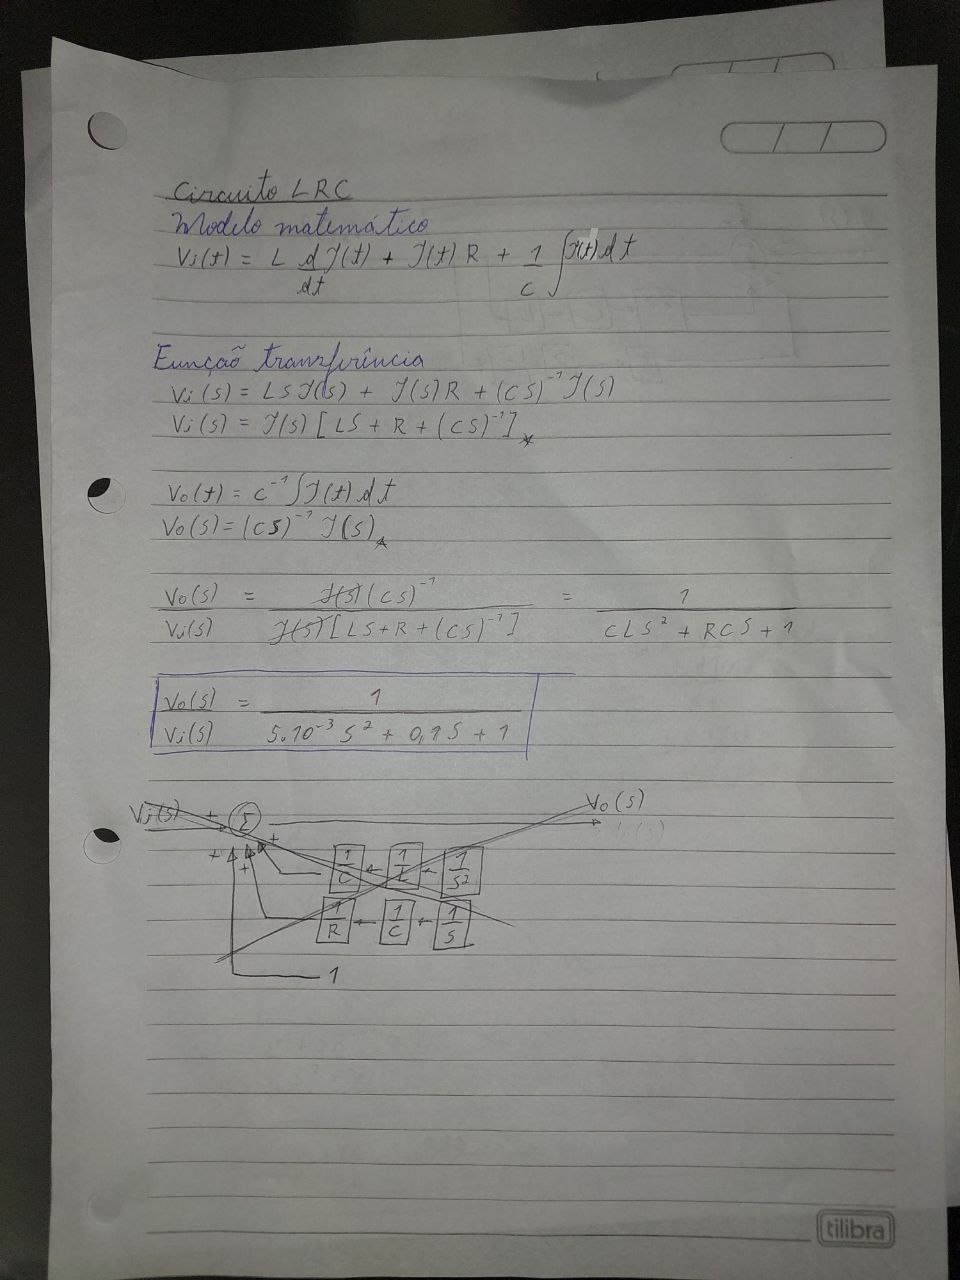 Circuito LRC
Modelo matemático
Vi(t) = L d/dt I(t) + I(t) R + 1/C ∫I(t) dt
Função transferência
Vi(s) = LS I(s) + I(s) R + (CS)⁻¹ I(s)
Vi(s) = I(s) [LS + R + (CS)⁻¹] *
Vo(t) = C⁻¹ ∫I(t) dt
Vo(s) = (CS)⁻¹ I(s) *
Vo(s)/Vi(s) = I(s)(CS)⁻¹ / I(s)[LS+R+(CS)⁻¹] = 1 / CLS² + RCS + 1
Vo(s)/Vi(s) = 1 / 5.10⁻³ S² + 0,1S + 1
Vi(s) + Σ Vo(s)
+ + +
1/C 1/L 1/S²
1/R 1/C 1/S
1
tilibra